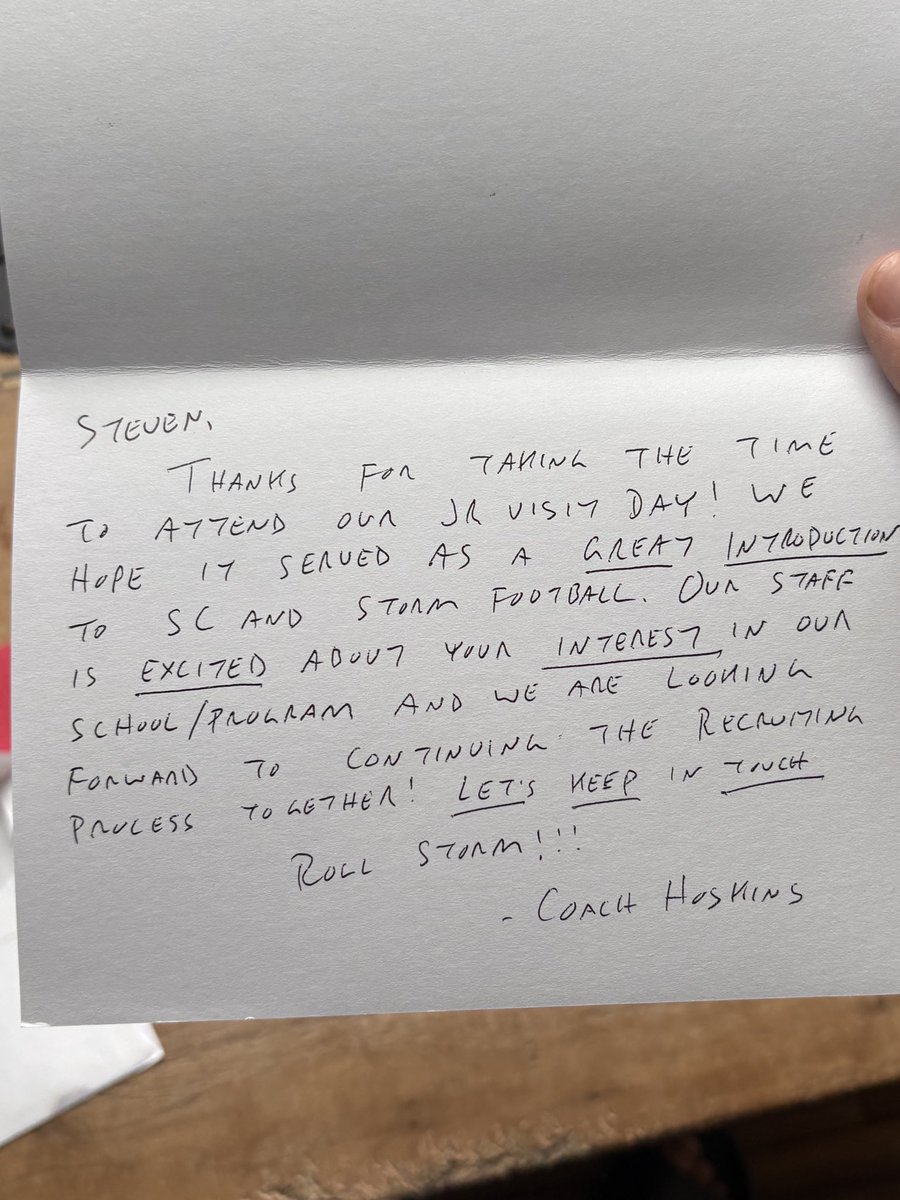 STEVEN,
THANKS FOR TAKING THE TIME
TO ATTEND OUR JR VISIT DAY! WE
HOPE IT SERVED AS A GREAT INTRODUCTION
TO SC AND STORM FOOTBALL. OUR STAFF
IS EXCITED ABOUT YOUR INTEREST IN OUR
SCHOOL/PROGRAM AND WE ARE LOOKING
FORWARD TO CONTINUING THE RECRUITING
PROCESS TOGETHER! LET'S KEEP IN TOUCH
ROLL STORM!!!
- COACH HOSKINS